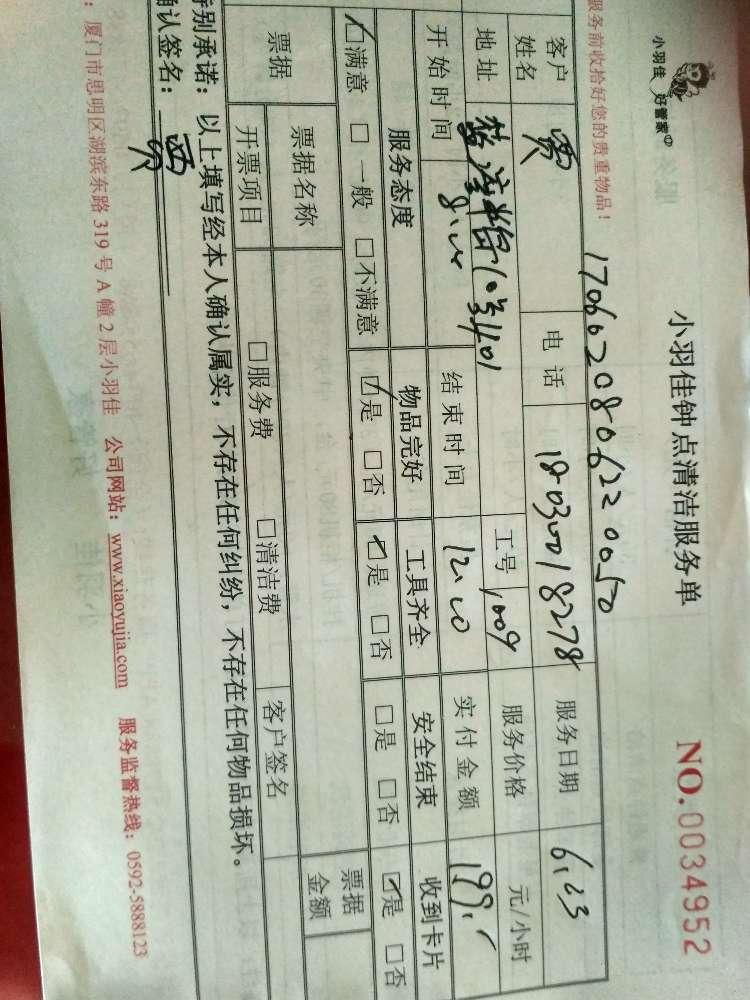 小羽佳 好管家
小羽佳钟点清洁服务单
NO.0034952
服务前收拾好您的贵重物品!
1706020806220050
客户姓名 电话 18030018278 服务日期 6.23
地址 工号 1009 服务价格 元/小时
开始时间 结束时间 12:00 实付金额 199.
服务态度 物品完好 工具齐全 安全结束 收到卡片
☑满意 □一般 □不满意 ☑是 □否 ☑是 □否 □是 □否 ☑是 □否
票据 票据名称 票据金额
开票项目 □服务费 □清洁费 客户签名
特别承诺:以上填写经本人确认属实,不存在任何纠纷,不存在任何物品损坏。
确认签名:
:厦门市思明区湖滨东路319号A幢2层小羽佳 公司网站:www.xiaoyujia.com 服务监督热线:0592-5888123